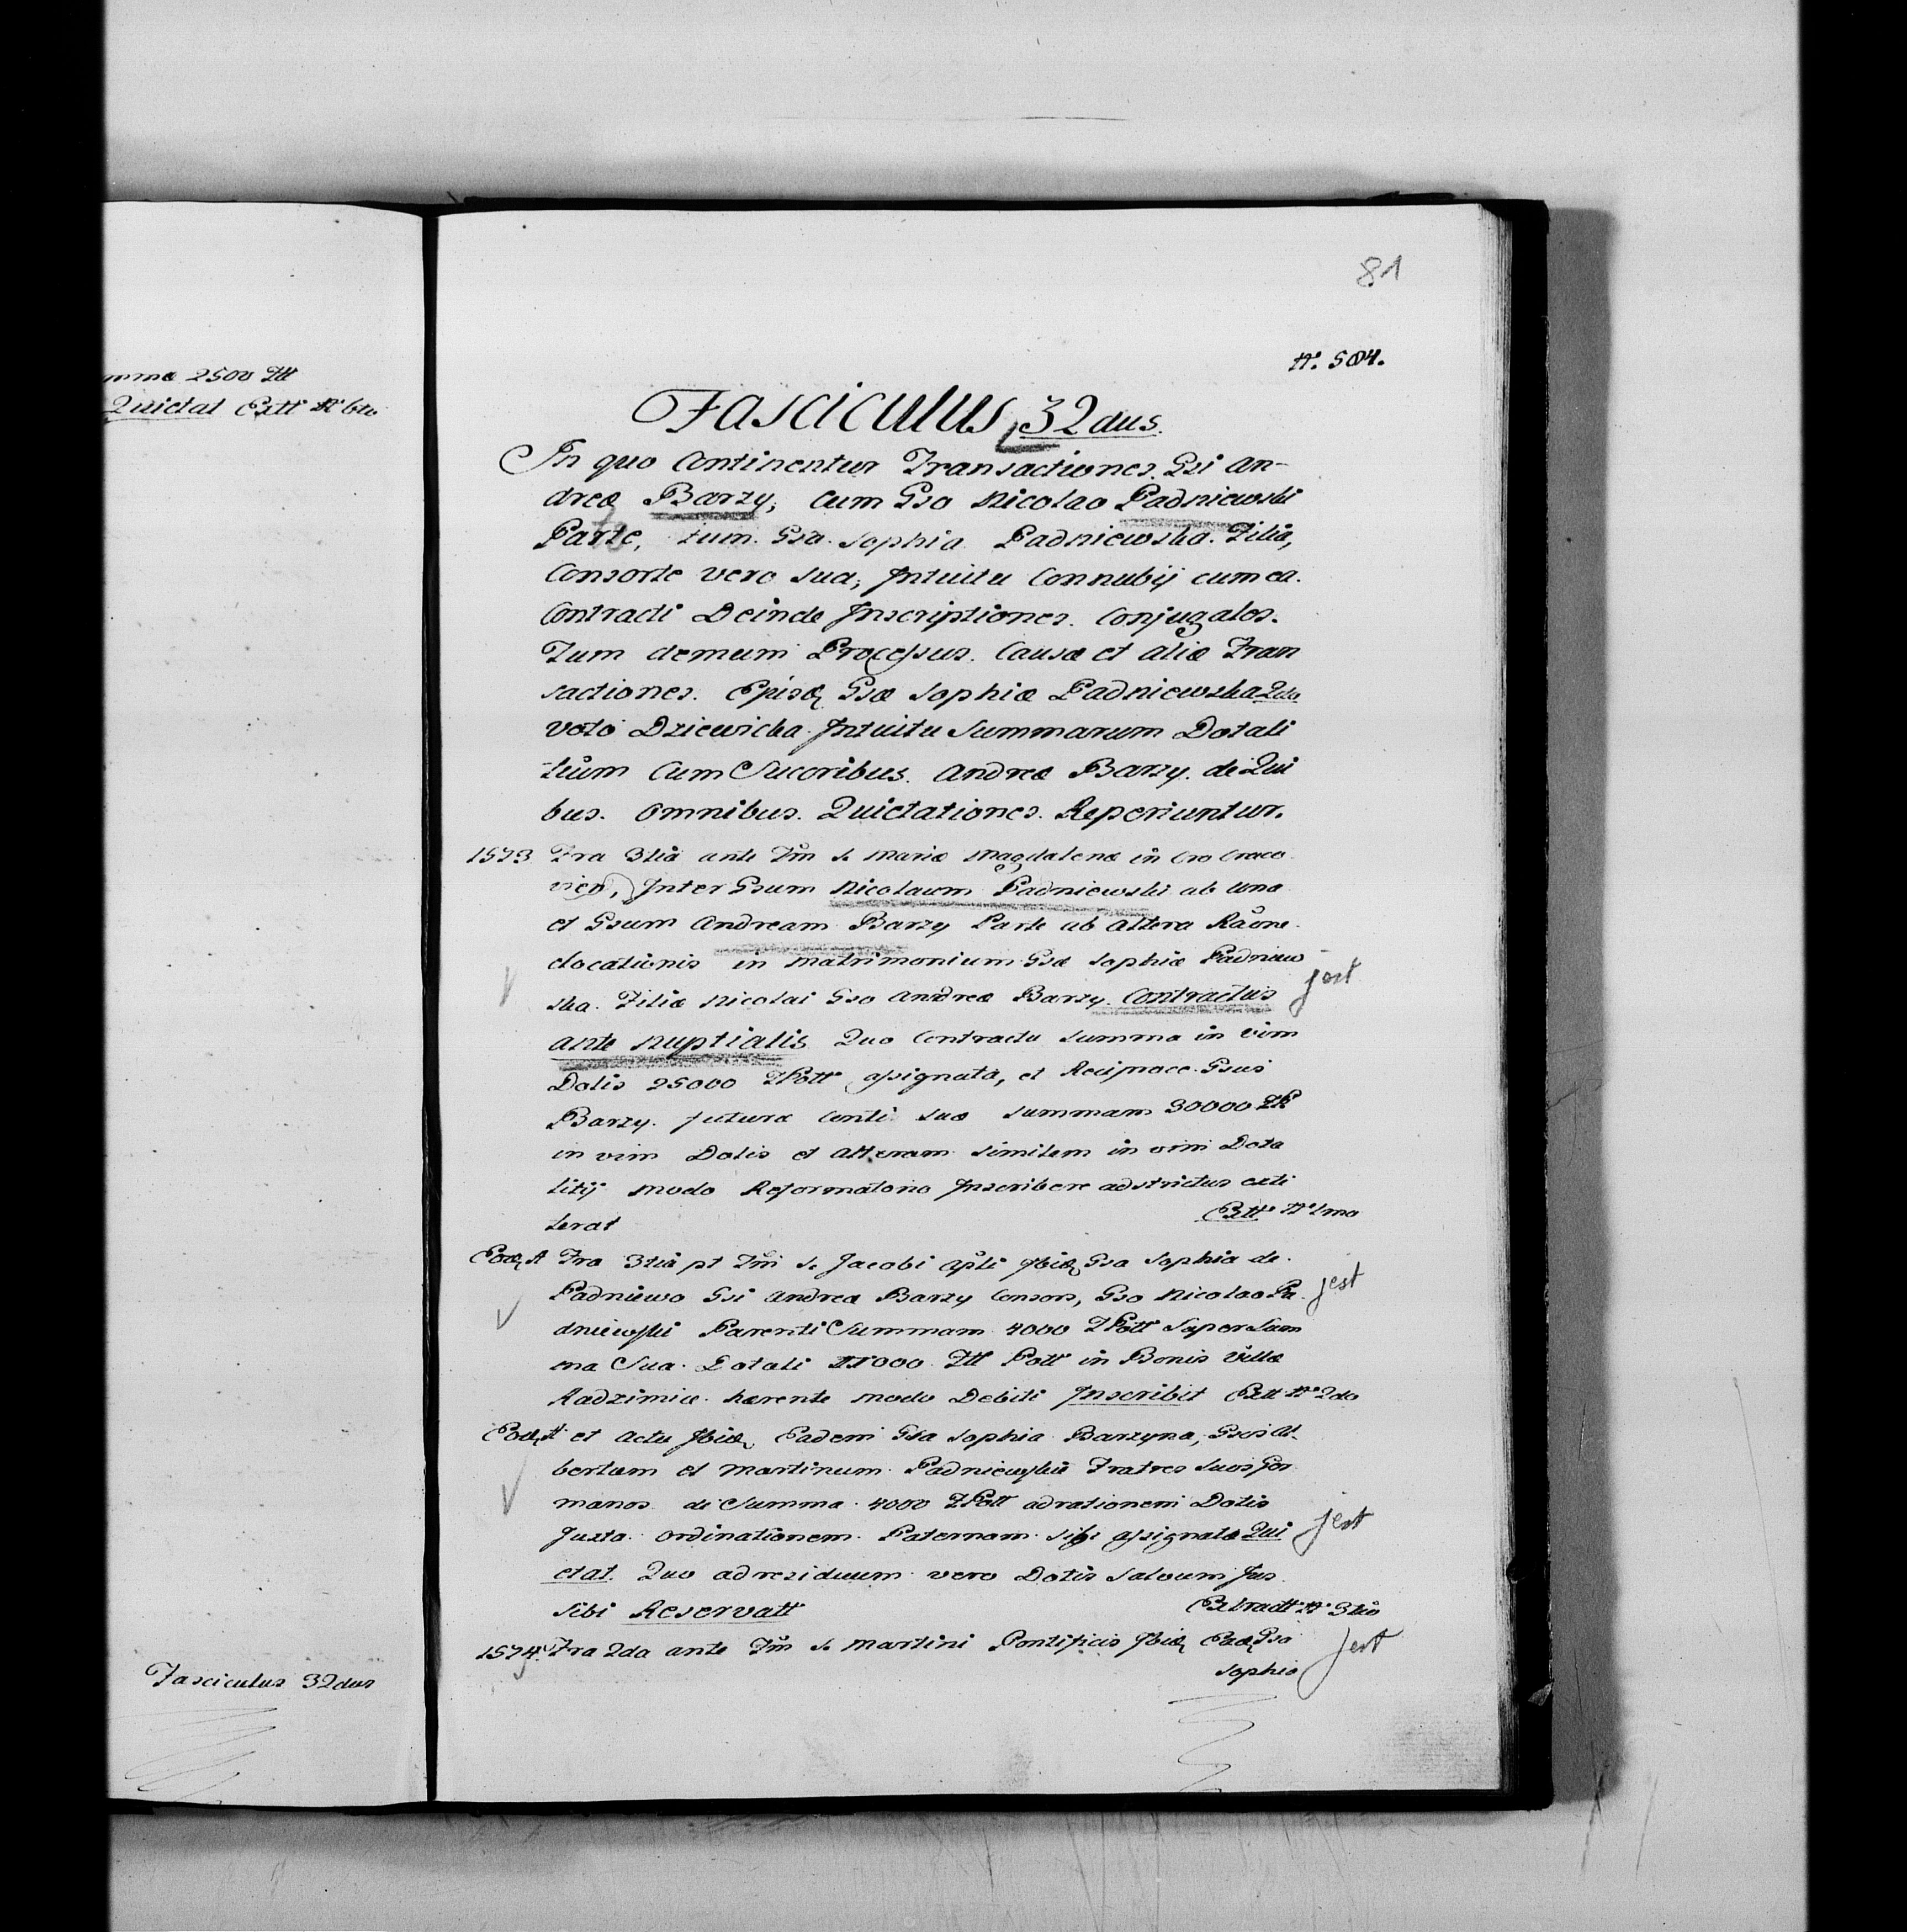 mma 2500 Ztt
Quietat Extt N 6to
Fasciculus 32dus
81
N. 504.
Fasciculus 32dus.
In quo Continentur Transactiones Gsi An-
dreæ Barzy, Cum Gso Nicolao Padniewski
Parte, tum Gsa Sophia Padniewska Filia,
Consorte vero Sua, Intuitu Connubij cum ea
Contracti Deinde Inscriptiones Conjugales.
Tum demum Processus Causæ et aliæ Tran
sactiones Ejusdq Gsæ Sophiæ Padniewska 2do
voto Dziewicka Intuitu Summarum Dotali
tium Cum Sucoribus Andreæ Barzy de Qui
bus omnibus Quietationes Reperiuntur.
1573 Fra 3tia ante Fm S. Mariæ Magdalenæ in Cro Craco
vien, Inter Gsum Nicolaum Padniewski ab una
et Gsum Andream Barzy Parte ab altera Raõne
elocationis in Matrimonium Gsæ Sophiæ Padniew
ska Filiæ Nicolai Gso Andreæ Barzy Contractus
ante nuptialis Quo Contractu Summa in vim
Dotis 25000 ZPott assignata, et Reciproce Gsus
Barzy futuræ Conti suæ Summam 30000 ZP
in vim Dotis et alteram similem in vim Dota
litij modo Reformatorio Inscribere adstrictus exti
terat Extt N 1mo
jest
Eodq A Fra 3tia pt Fm S. Jacobi Apli Ibidq Gsa Sophia de
Padniewo Gsi Andreæ Barzy Consors, Gso Nicolao Pa
dniewski Parenti Summam 4000 ZPott Super Sum
ma Sua Dotali 11000 Ztt Pott in Bonis Villæ
Radzimice hærente modo Debiti Inscribit Extt N 2do
jest
Eodq A et Actu Ibidq Eadem Gsa Sophia Barzyna, Gsos Al
bertum et Martinum Padniewskie Fratres Suos Ger
manos de Summa 4000 ZPott ad rationem Dotis
Juxta ordinationem Paternam sibi assignata Qui
etat. Quo ad residuum vero Dotis Salvum Jus
sibi Reservatt Extractt N 3tio
jest
1574 Fra 2da ante Fm S. Martini Pontificis Ibidq Eadq Gsa
Sophia
jest